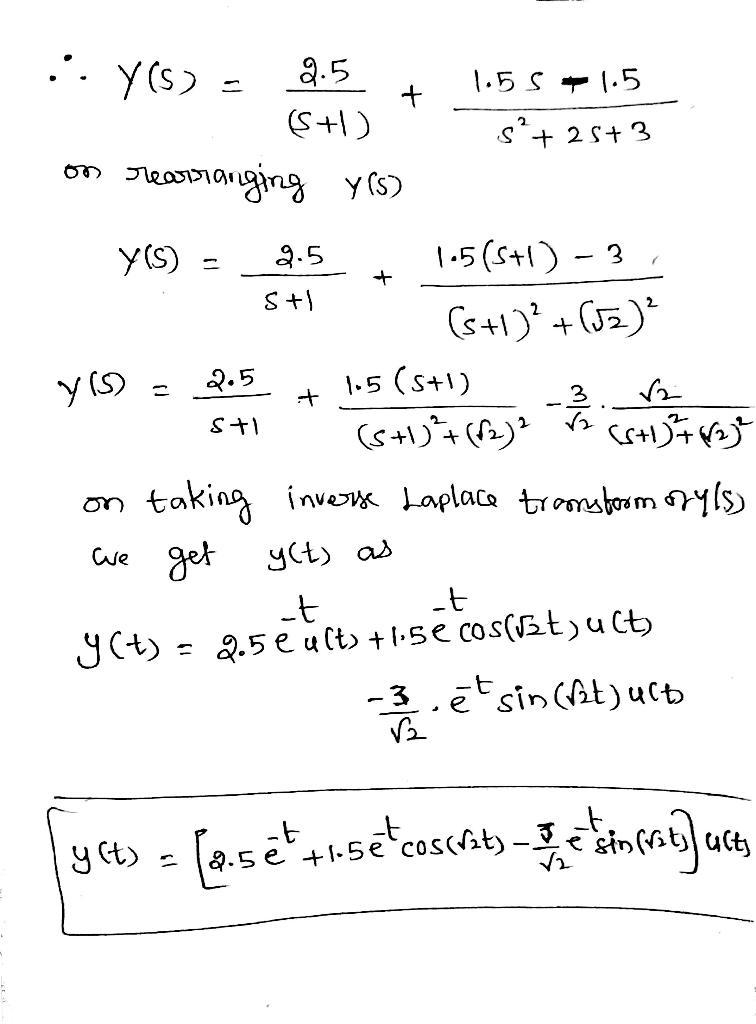 ∴ Y(s) = 2.5/(s+1) + (1.5s - 1.5)/(s²+2s+3)
on rearranging y(s)
Y(s) = 2.5/(s+1) + (1.5(s+1) - 3)/((s+1)²+(√2)²)
y(s) = 2.5/(s+1) + 1.5(s+1)/((s+1)²+(√2)²) - 3/√2 · √2/((s+1)²+(√2)²)
on taking inverse Laplace transform of y(s)
we get y(t) as
y(t) = 2.5e^-t u(t) + 1.5e^-t cos(√2t)u(t)
-3/√2 . e^-t sin(√2t)u(t)
y(t) = [2.5e^-t + 1.5e^-t cos(√2t) - 3/√2 e^-t sin(√2t)]u(t)